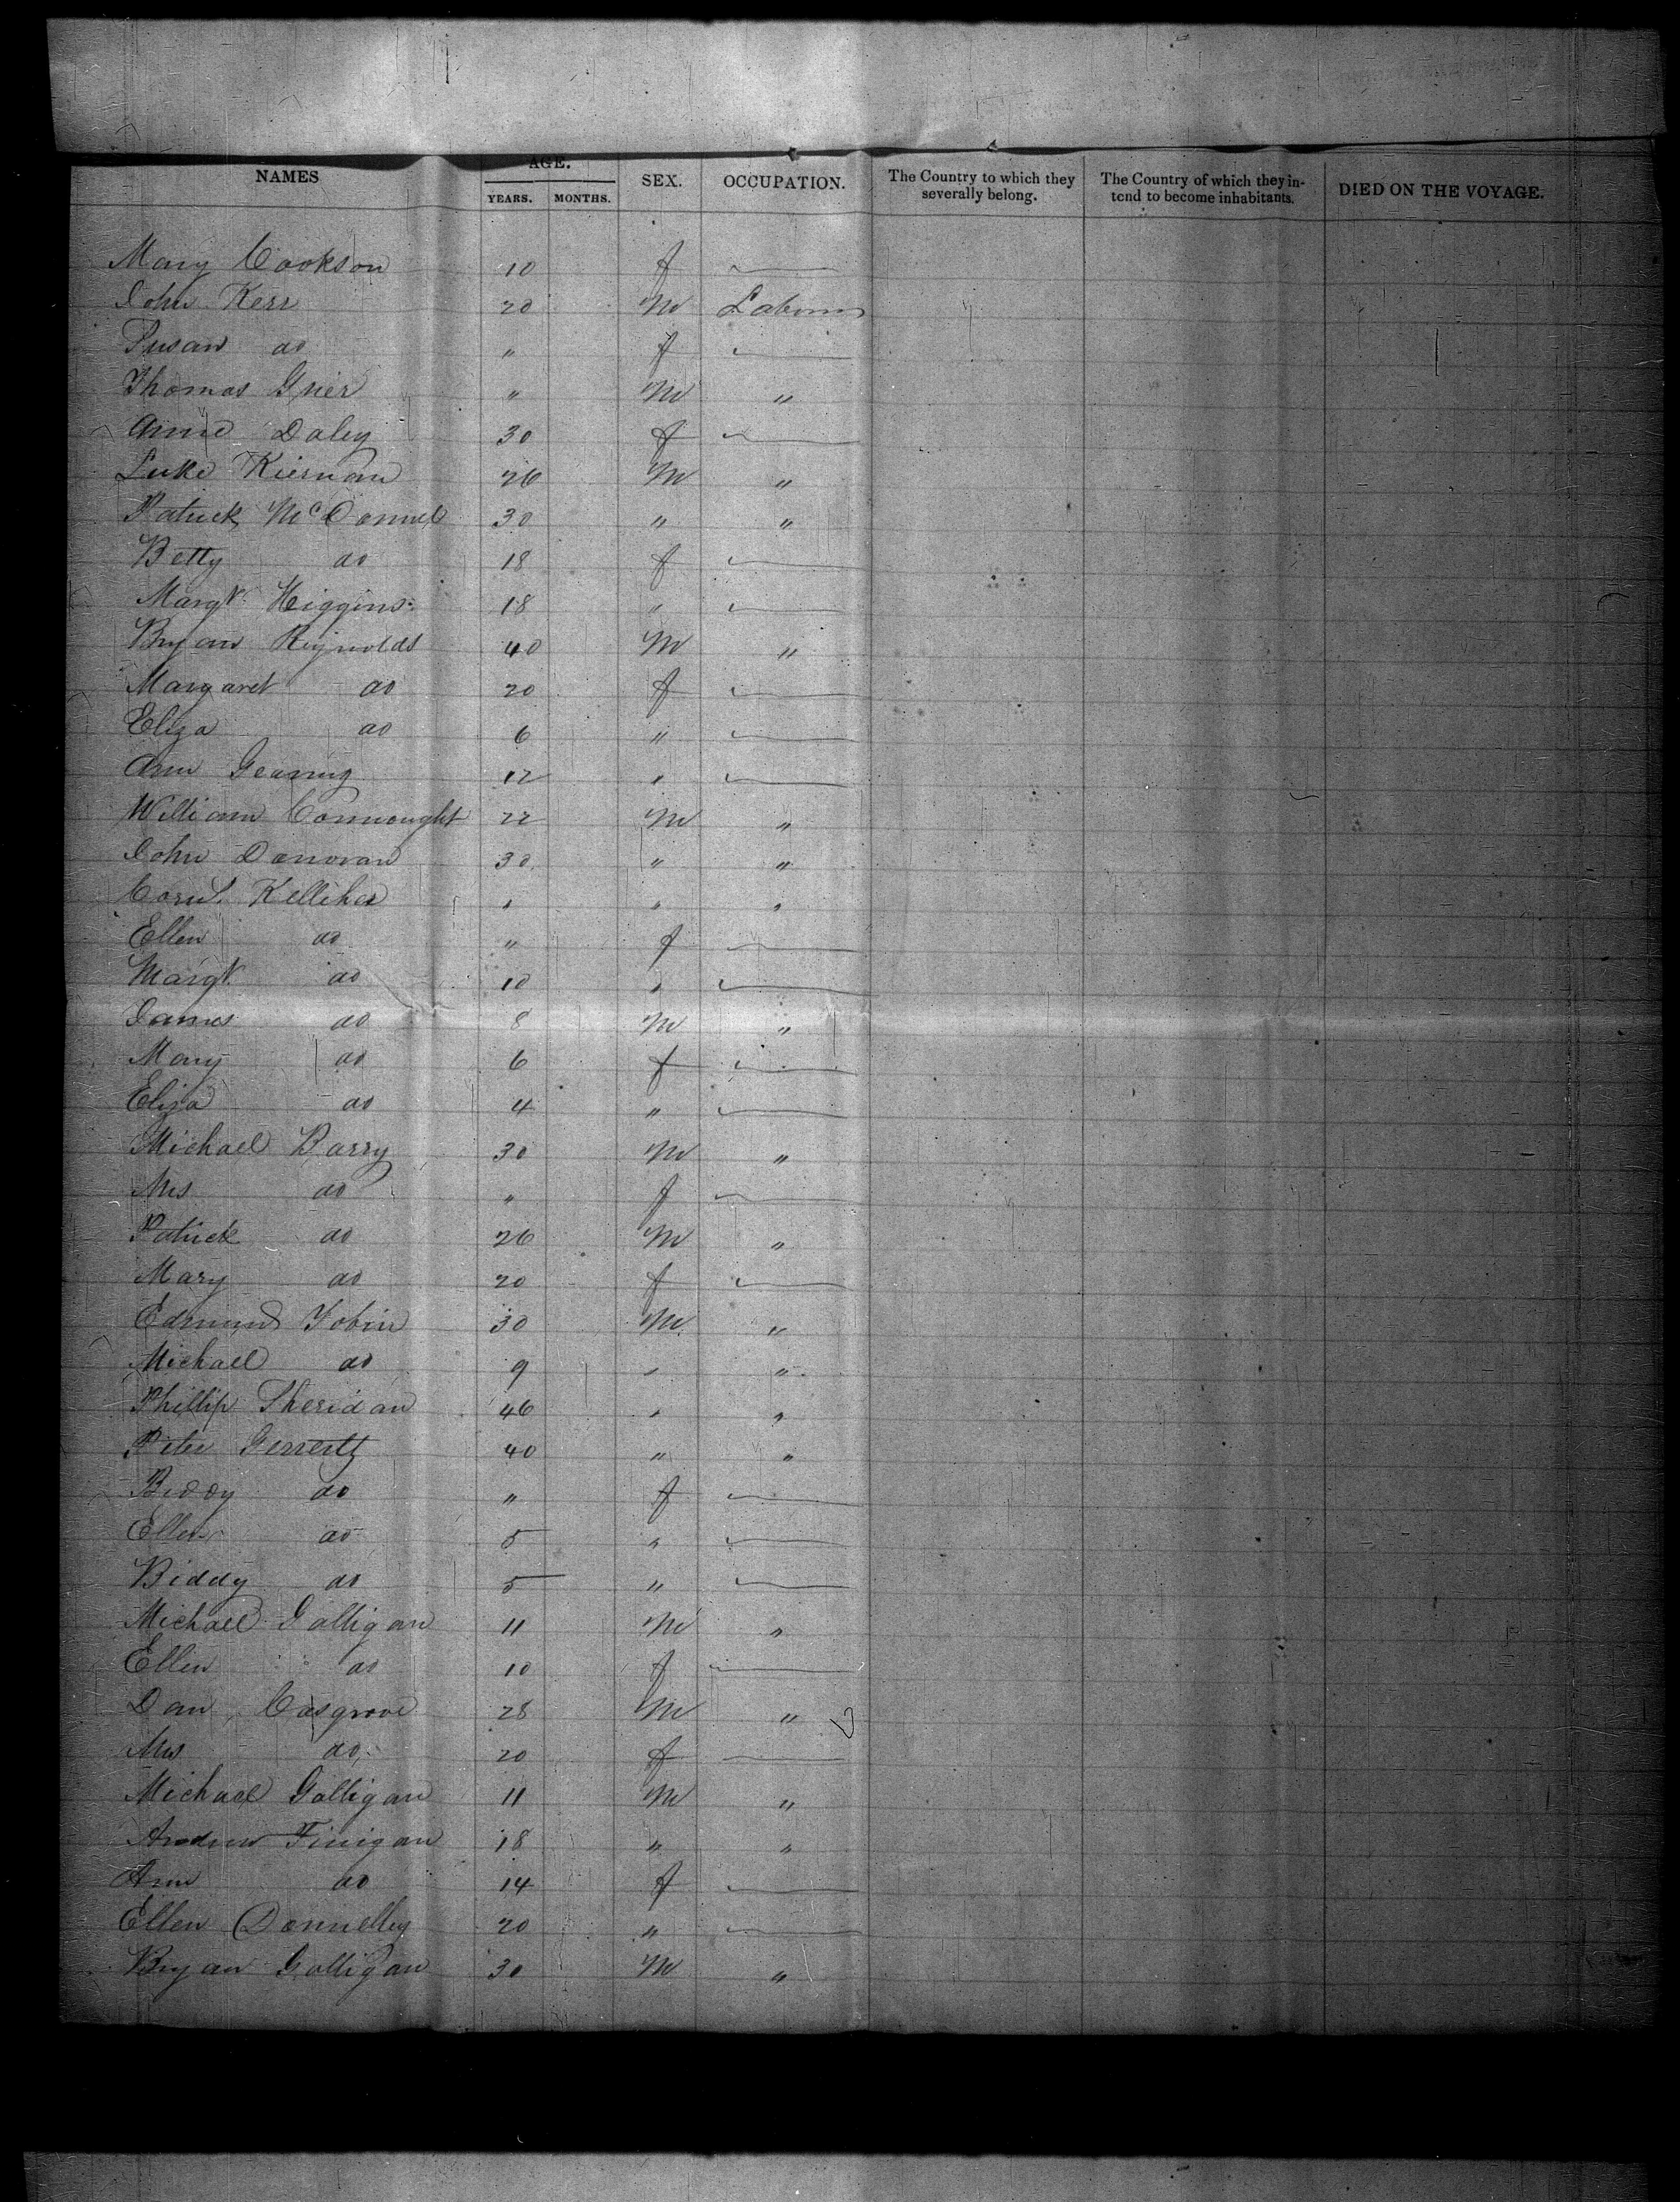 NAMES AGE. YEARS. MONTHS. SEX. OCCUPATION. The Country to which they severally belong. The Country of which they intend to become inhabitants. DIED ON THE VOYAGE.
Mary Cookson 10 f —
John Kerr 20 M Labourer
Susan do " f —
Thomas Grier " M "
Anne Daley 30 f —
Luke Kiernan 26 M "
Patrick McDonnel 30 " "
Betty do 18 f —
Margt. Higgins 18 " —
Bryan Reynolds 40 M "
Margaret do 20 f —
Eliza do 6 " —
Ann 12 " —
William Connought 22 M "
John Donovan 30 " "
Cornl. Kelliher " " "
Ellen do " f —
Margt. do 10 " —
James do 8 M "
Mary do 6 f —
Eliza do 4 " —
Michael Barry 30 M "
Mrs do " f —
Patrick do 26 M "
Mary do 20 f —
Edmund Tobin 30 M "
Michael do 9 " "
Phillip Sheridan 46 " "
Peter 40 " "
Biddy do " f —
Ellen do 5 " —
Biddy do 5 " —
Michael Galligan 11 M "
Ellen do 10 f —
Dan Cosgrove 28 M "
Mrs do 20 f —
Michael Galligan 11 M "
Andrew Finigan 18 " "
Ann do 14 f —
Ellen Donnelly 20 " —
Bryan Galligan 30 M "